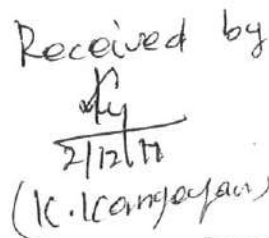 Received by
2/12/11
(K. Kangayan)